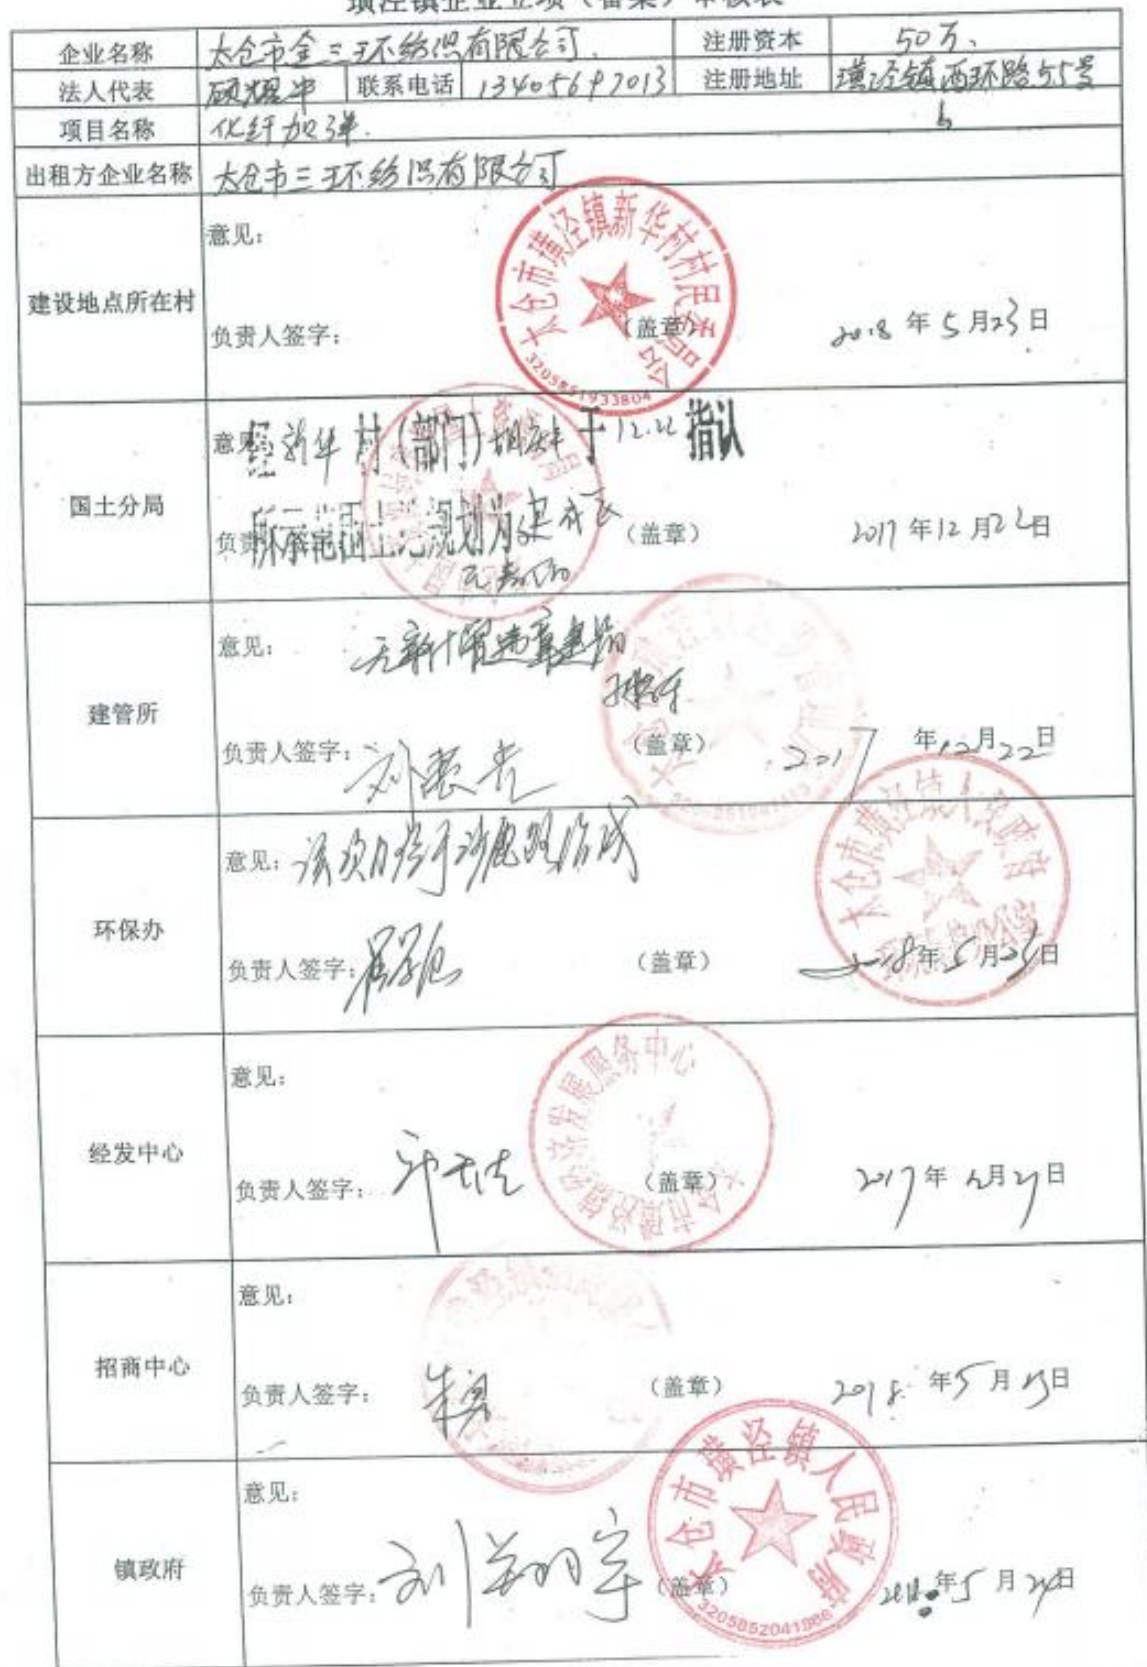 璜泾镇企业立项（备案）审核表
企业名称 太仓市金三环纺织有限公司 注册资本 50万
法人代表 顾耀平 联系电话 13405697013 注册地址 璜泾镇西环路55号
项目名称 化纤加弹
出租方企业名称 太仓市三环纺织有限公司
建设地点所在村
意见：
负责人签字： （盖章） 2018年5月23日
太仓市璜泾镇新华村村民委员会
3205851933804
国土分局
意见： 经新华村（部门）于12.22指认
所示范围土地规划为
负责人签字： （盖章） 2017年12月22日
建管所
意见： 无新增违章建筑
负责人签字： （盖章） 2017年12月22日
环保办
意见： 该项目
负责人签字： （盖章） 2018年5月23日
太仓市璜泾镇人民政府
经发中心
意见：
负责人签字： （盖章） 2017年12月27日
太仓市璜泾镇经济发展服务中心
招商中心
意见：
负责人签字： 朱勇 （盖章） 2018年5月23日
镇政府
意见：
负责人签字： 刘翔宇 （盖章） 2018年5月24日
太仓市璜泾镇人民政府
3205852041986